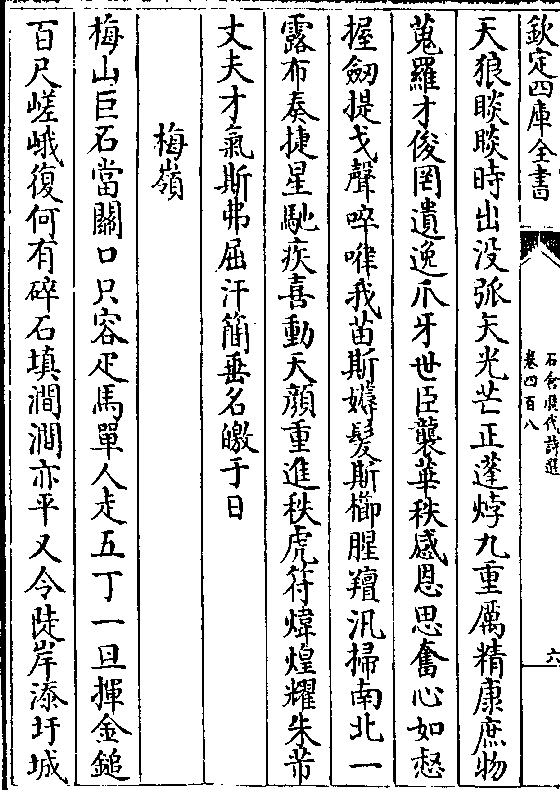 欽定四庫全書
石倉歷代詩選
卷四百八
六
天狼睒睒時出没弧矢光芒正蓬烰九重厲精康庶物
蒐羅才俊罔遺逸爪牙世臣襲華秩感恩思奮心如惄
握劒提戈聲啐嘒我苗斯媷髮斯櫛腥羶汛掃南北一
露布奏捷星馳疾喜動天顔重進秩虎符煒煌耀朱芾
丈夫才氣斯弗屈汗簡垂名皦于日
梅嶺
梅山巨石當關口只容疋馬單人走五丁一旦揮金鎚
百尺嵯峨復何有碎石填澗澗亦平又令陡岸添圩城